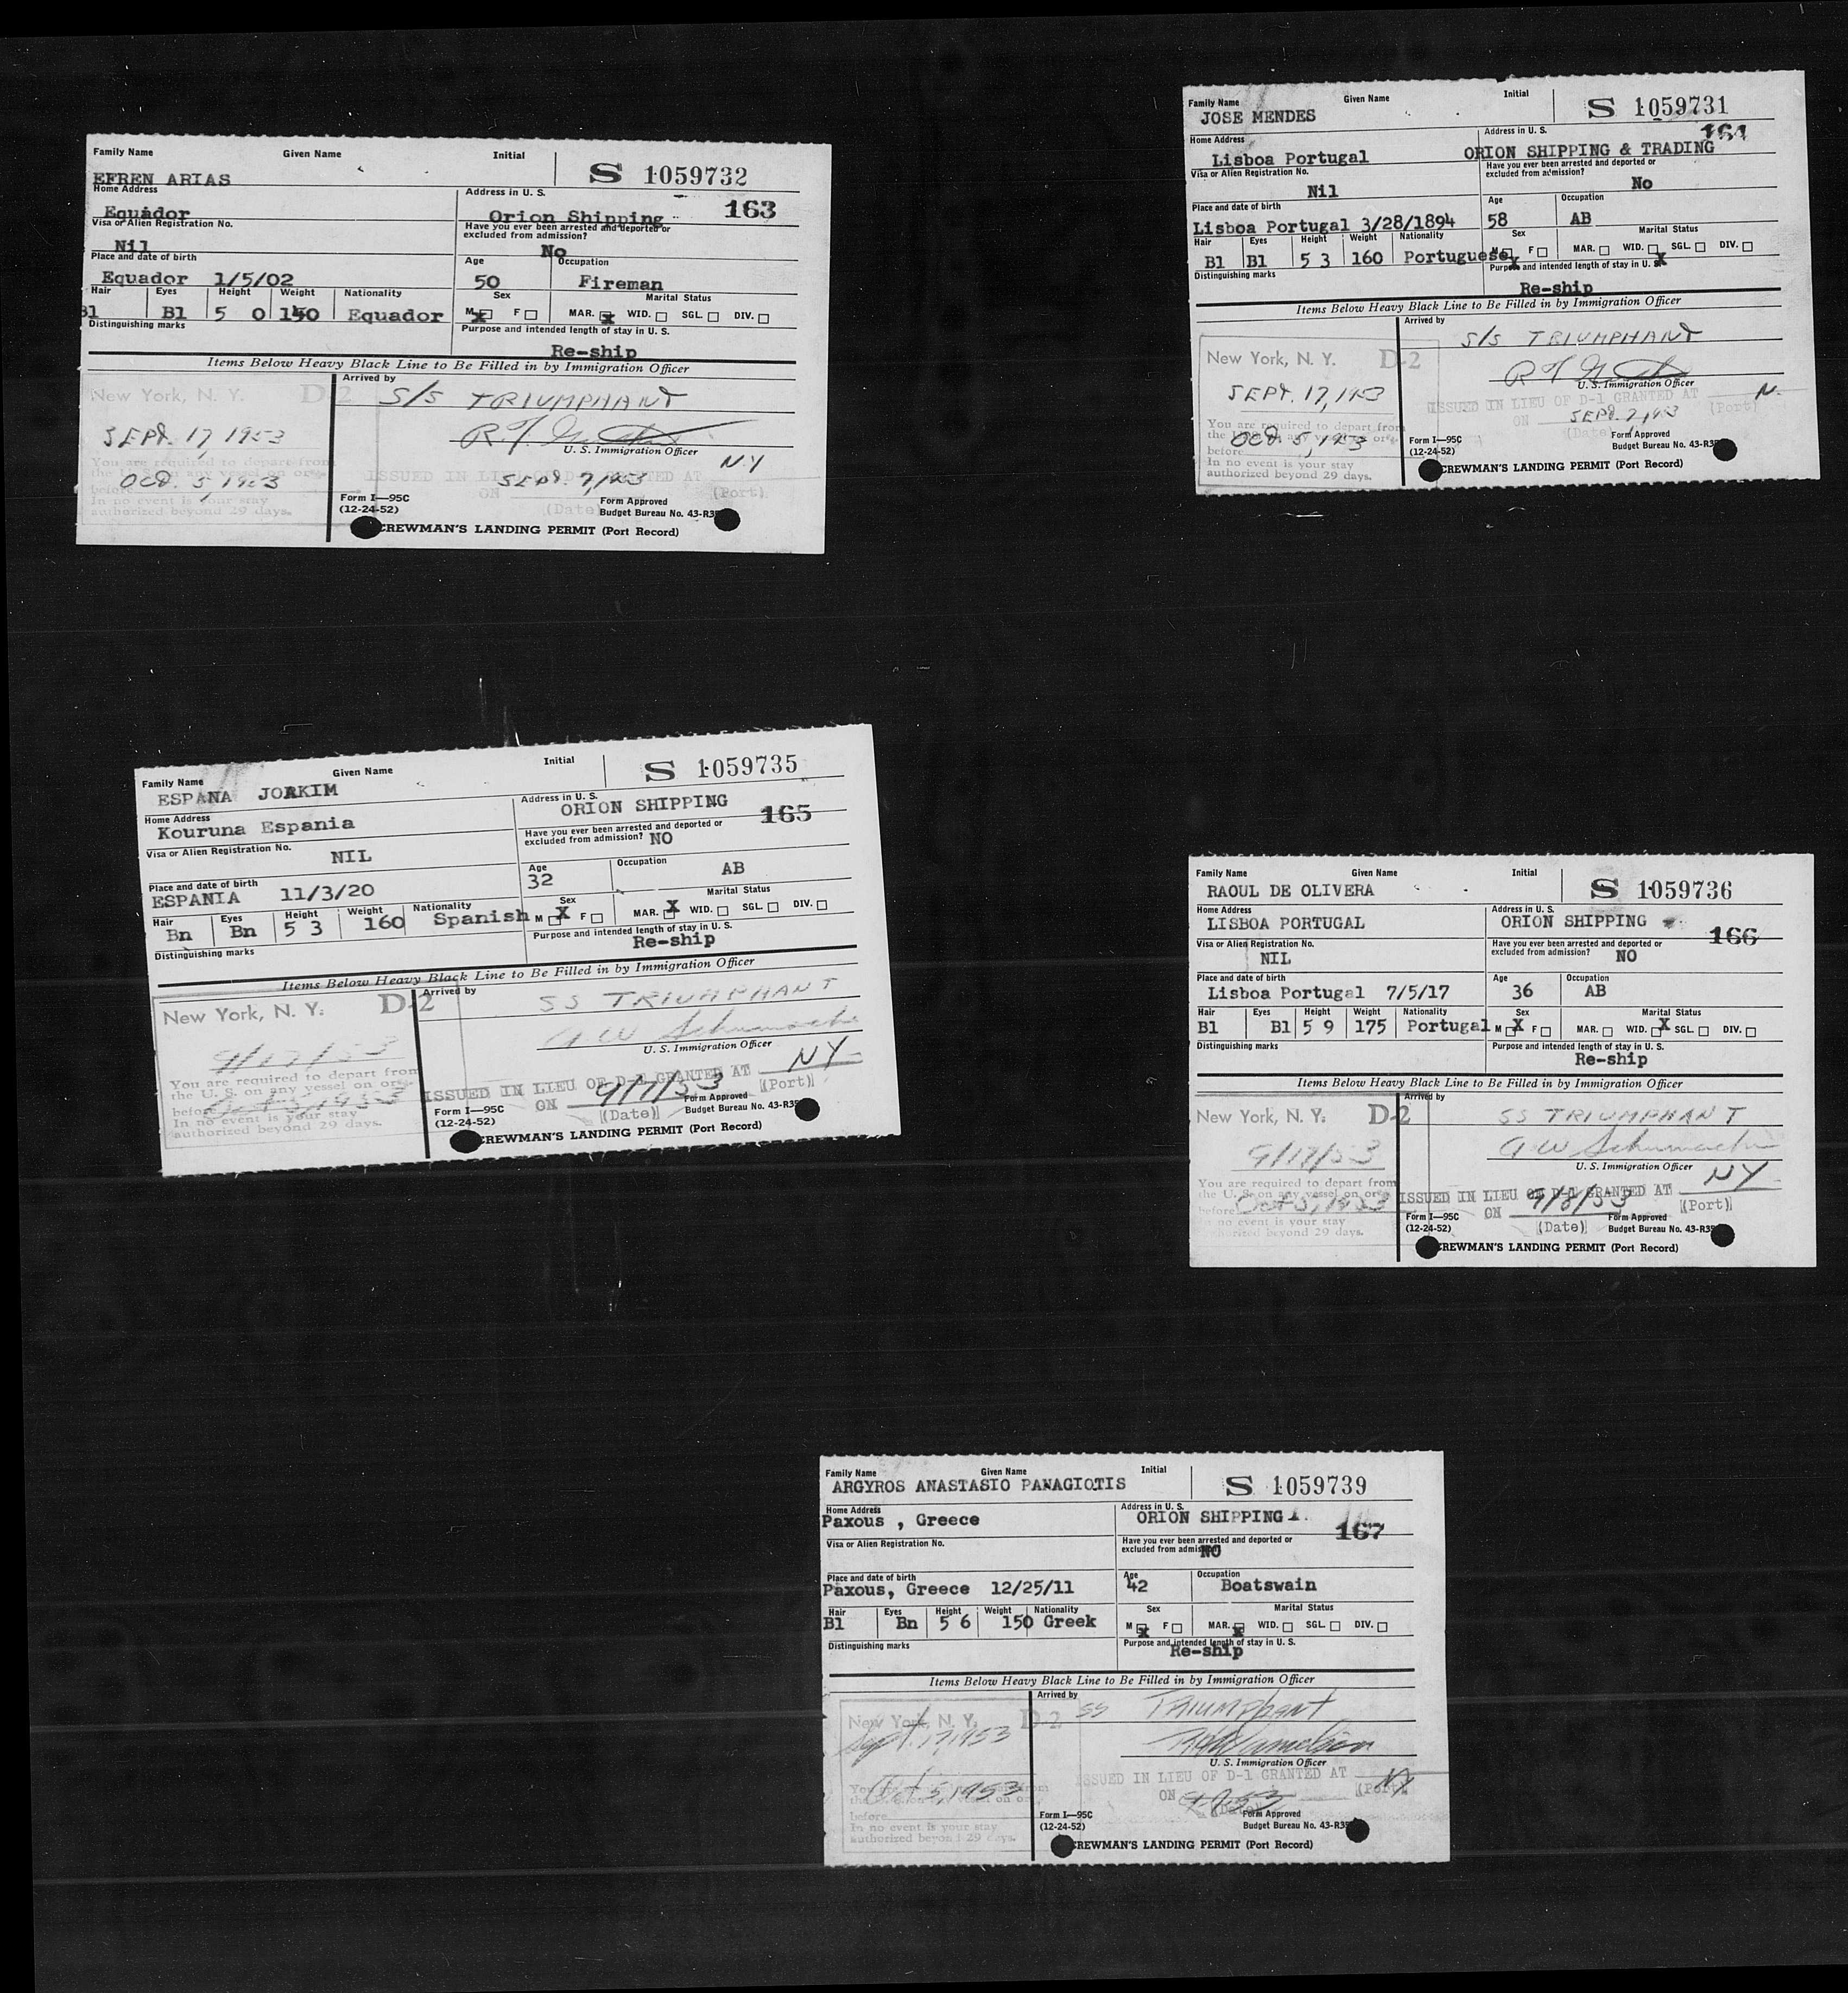 Family Name Given Name Initial S 1059732
EFREN ARIAS
Home Address Address in U. S. 163
Equador Orion Shipping
Visa or Alien Registration No. Have you ever been arrested and deported or excluded from admission?
Nil No
Place and date of birth Age Occupation
Equador 1/5/02 50 Fireman
Hair Eyes Height Weight Nationality Sex Marital Status
Bl Bl 5 0 150 Equador M X F MAR. X WID. SGL. DIV.
Distinguishing marks Purpose and intended length of stay in U. S.
Re-ship
Items Below Heavy Black Line to Be Filled in by Immigration Officer
New York, N. Y. D-2 Arrived by S/S TRIUMPHANT
SEPT. 17, 1953
U. S. Immigration Officer
You are required to depart from
the U. S. on any vessel on or
before OCT. 5, 1953
In no event is your stay
authorized beyond 29 days.
ISSUED IN LIEU OF D-1 GRANTED AT N.Y (Port)
ON SEPT. 7, 1953 (Date)
Form I—95C Form Approved
(12-24-52) Budget Bureau No. 43-R35
CREWMAN'S LANDING PERMIT (Port Record)
Family Name Given Name Initial S 1059731
JOSE MENDES
Home Address Address in U. S. 164
Lisboa Portugal ORION SHIPPING & TRADING
Visa or Alien Registration No. Have you ever been arrested and deported or excluded from admission?
Nil No
Place and date of birth Age Occupation
Lisboa Portugal 3/28/1894 58 AB
Hair Eyes Height Weight Nationality Sex Marital Status
Bl Bl 5 3 160 Portuguese M X F MAR. WID. X SGL. DIV.
Distinguishing marks Purpose and intended length of stay in U. S.
Re-ship
Items Below Heavy Black Line to Be Filled in by Immigration Officer
New York, N. Y. D-2 Arrived by S/S TRIUMPHANT
SEPT. 17, 1953
U. S. Immigration Officer
You are required to depart from
the U. S. on any vessel on or
before OCT. 5, 1953
In no event is your stay
authorized beyond 29 days.
ISSUED IN LIEU OF D-1 GRANTED AT N. (Port)
ON SEPT. 7, 1953 (Date)
Form I—95C Form Approved
(12-24-52) Budget Bureau No. 43-R35
CREWMAN'S LANDING PERMIT (Port Record)
Family Name Given Name Initial S 1059735
ESPANA JOAKIM
Home Address Address in U. S. 165
Kouruna Espania ORION SHIPPING
Visa or Alien Registration No. Have you ever been arrested and deported or excluded from admission?
NIL NO
Place and date of birth Age Occupation
ESPANIA 11/3/20 32 AB
Hair Eyes Height Weight Nationality Sex Marital Status
Bn Bn 5 3 160 Spanish M X F MAR. X WID. SGL. DIV.
Distinguishing marks Purpose and intended length of stay in U. S.
Re-ship
Items Below Heavy Black Line to Be Filled in by Immigration Officer
New York, N. Y. D-2 Arrived by SS TRIUMPHANT
9/17/53
U. S. Immigration Officer
You are required to depart from
the U. S. on any vessel on or
before Oct 5, 1953
In no event is your stay
authorized beyond 29 days.
ISSUED IN LIEU OF D-1 GRANTED AT NY (Port)
ON 9/7/53 (Date)
Form I—95C Form Approved
(12-24-52) Budget Bureau No. 43-R35
CREWMAN'S LANDING PERMIT (Port Record)
Family Name Given Name Initial S 1059736
RAOUL DE OLIVERA
Home Address Address in U. S. 166
LISBOA PORTUGAL ORION SHIPPING
Visa or Alien Registration No. Have you ever been arrested and deported or excluded from admission?
NIL NO
Place and date of birth Age Occupation
Lisboa Portugal 7/5/17 36 AB
Hair Eyes Height Weight Nationality Sex Marital Status
Bl Bl 5 9 175 Portugal M X F MAR. WID. X SGL. DIV.
Distinguishing marks Purpose and intended length of stay in U. S.
Re-ship
Items Below Heavy Black Line to Be Filled in by Immigration Officer
New York, N. Y. D-2 Arrived by SS TRIUMPHANT
9/17/53
U. S. Immigration Officer
You are required to depart from
the U. S. on any vessel on or
before Oct 5, 1953
In no event is your stay
authorized beyond 29 days.
ISSUED IN LIEU OF D-1 GRANTED AT NY (Port)
ON 9/8/53 (Date)
Form I—95C Form Approved
(12-24-52) Budget Bureau No. 43-R35
CREWMAN'S LANDING PERMIT (Port Record)
Family Name Given Name Initial S 1059739
ARGYROS ANASTASIO PANAGIOTIS
Home Address Address in U. S. 167
Paxous , Greece ORION SHIPPING
Visa or Alien Registration No. Have you ever been arrested and deported or excluded from admission?
NO
Place and date of birth Age Occupation
Paxous, Greece 12/25/11 42 Boatswain
Hair Eyes Height Weight Nationality Sex Marital Status
Bl Bn 5 6 150 Greek M X F MAR. X WID. SGL. DIV.
Distinguishing marks Purpose and intended length of stay in U. S.
Re-ship
Items Below Heavy Black Line to Be Filled in by Immigration Officer
New York, N. Y. D-2 Arrived by SS TRIUMPHANT
Sept. 17, 1953
U. S. Immigration Officer
You are required to depart from
the U. S. on any vessel on or
before Oct 5, 1953
In no event is your stay
authorized beyond 29 days.
ISSUED IN LIEU OF D-1 GRANTED AT NY (Port)
ON (Date)
Form I—95C Form Approved
(12-24-52) Budget Bureau No. 43-R35
CREWMAN'S LANDING PERMIT (Port Record)